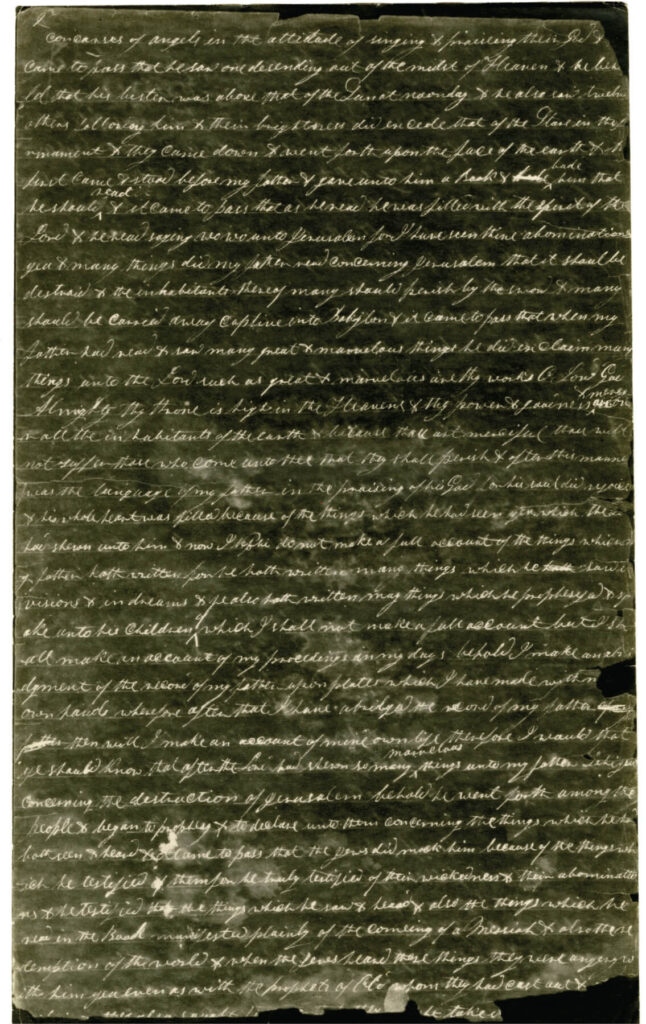 2
concauses of angels in the attitude of singing & praiseing their God &
came to pass that he saw one desending out of the midst of Heaven & he beh
ld that his lustre was above that of the Sun at noonday & he also saw twelve
others following him & their brightness did excede that of the Stars in the
rmament & they came down & went forth upon the face of the earth & the
first came & stood before my father & gave unto him a Book & bade him that
he should read & it came to pass that as he read he was filled with the spirit of the
Lord & he read saying wo wo unto Jerusalem for I have seen thine abomination
yea & many things did my father read concerning Jerusalem that it should be
destroid & the inhabitants thereof many should perish by the sword & many
should be carried away captive into Babylon & it came to pass that when my
father had read & saw many great & marvelous things he did exclaim many
things unto the Lord such as great & marvelous are thy works O Lord God
Almighty thy throne is high in the Heavens & thy power & goodness & mercy is over
all the inhabitants of the earth & because thou art merciful thou wilt
not suffer those who come unto thee that they shall perish & after this manner
was the language of my father in the praising of his God for his soul did rejoice
& his whole heart was filled because of the things which he had seen yea which the
had shewn unto him & now I do not make a full account of the things which
my father hath written for he hath written many things which he saw in
visions & in dreams & he also hath written many things which he prophesyed & sp
ake unto his children which I shall not make a full account but I sh
all make an account of my procedings in my days behold I make an abri
dgment of the record of my father upon plates which I have made with mine
own hands wherefore after that I have abridged the record of my father
then will I make an account of mine own life therefore I would that
ye should know that after the Lord had shewn so many marvelous things unto my father Lehi yea
concerning the destruction of Jerusalem behold he went forth among the
people & began to prophesy & to declare unto them concerning the things which he had
both seen & heard & it came to pass that the jews did mock him because of the things wh
ich he testified of them for he truly testified of their wickedness & their abominatio
ns & he testified that the things which he saw & heard & also the things which he
read in the Book manifested plainly of the comeing of a Messiah & also the re
demptions of the world & when the Jews heard these things they were angery w
ith him yea even as with the prophets of Old whom they had cast out &